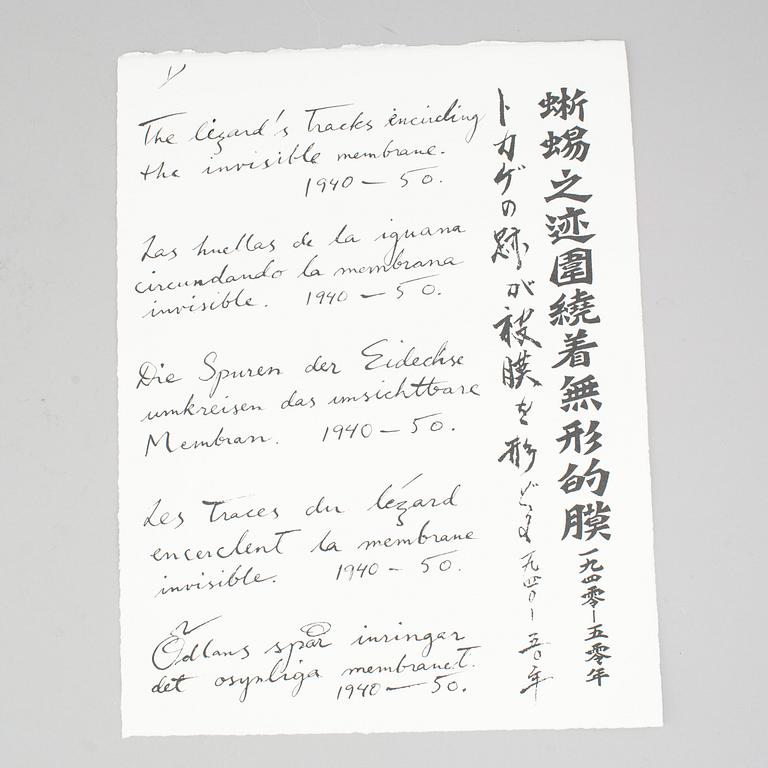 The lézard's Tracks encircling
the invisible membrane.
1940 – 50.
Las huellas de la iguana
circundando la membrana
invisible. 1940 – 50.
Die Spuren der Eidechse
umkreisen das unsichtbare
Membran. 1940 – 50.
Les Traces du lézard
encerclent la membrane
invisible. 1940 – 50.
Ödlans spår inringar
det osynliga membranet.
1940 – 50.
蜥蜴之迹圍繞着無形的膜一九四零–五零年
トカゲの跡が被膜を形どる 一九四〇–五〇年